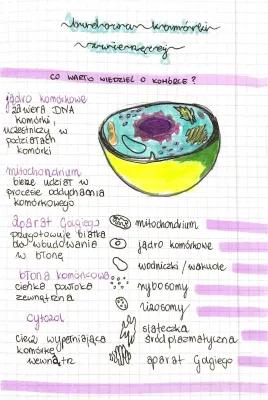 budowa komórki
zwierzęcej
CO WARTO WIEDZIEĆ O KOMÓRCE?
jądro komórkowe
zawiera DNA
komórki,
uczestniczy w
podziałach
komórki
mitochondrium
bierze udział w
procesie oddychania
komórkowego
aparat Golgiego
przygotowuje białka
do wbudowania
w błonę
błona komórkowa
cienka powłoka
zewnętrzna
cytozol
ciecz wypełniająca
komórkę
wewnątrz
mitochondrium
jądro komórkowe
wodniczki/wakuole
rybosomy
lizosomy
siateczka
śródplazmatyczna
aparat Golgiego